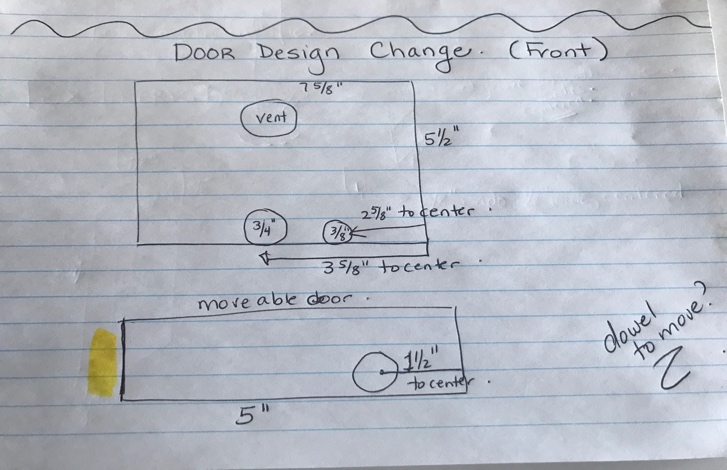 DOOR Design Change. (Front)
7 5/8"
vent
5 1/2"
2 5/8" to center.
3/4"
3/8"
3 5/8" to center.
moveable door.
1 1/2"
to center.
5"
dowel
to move?